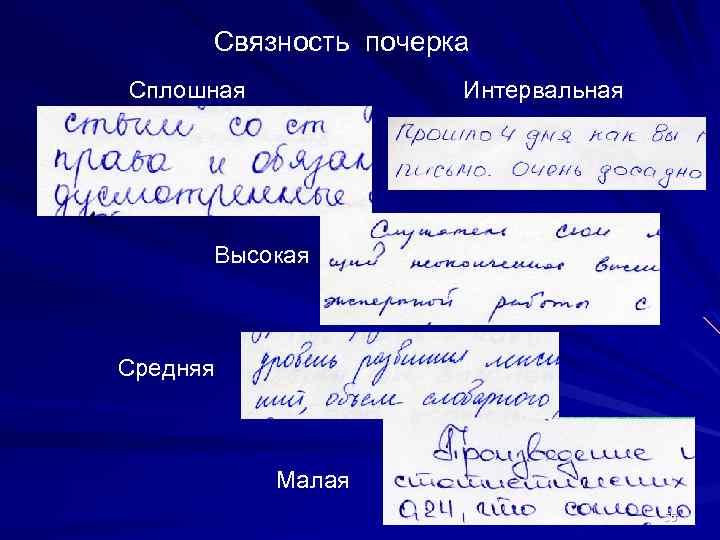 Связность почерка
Сплошная
Интервальная
ствии со ст
права и обязан
дусмотренные
Прошло 4 дня как вы п
письмо. Очень досадно
Высокая
Слушатель свои
щий неоконченное
экспертной работы с
Средняя
уровень развития лекси
ний, объем словарного
Малая
Произведение и
статистических
924, что согласно